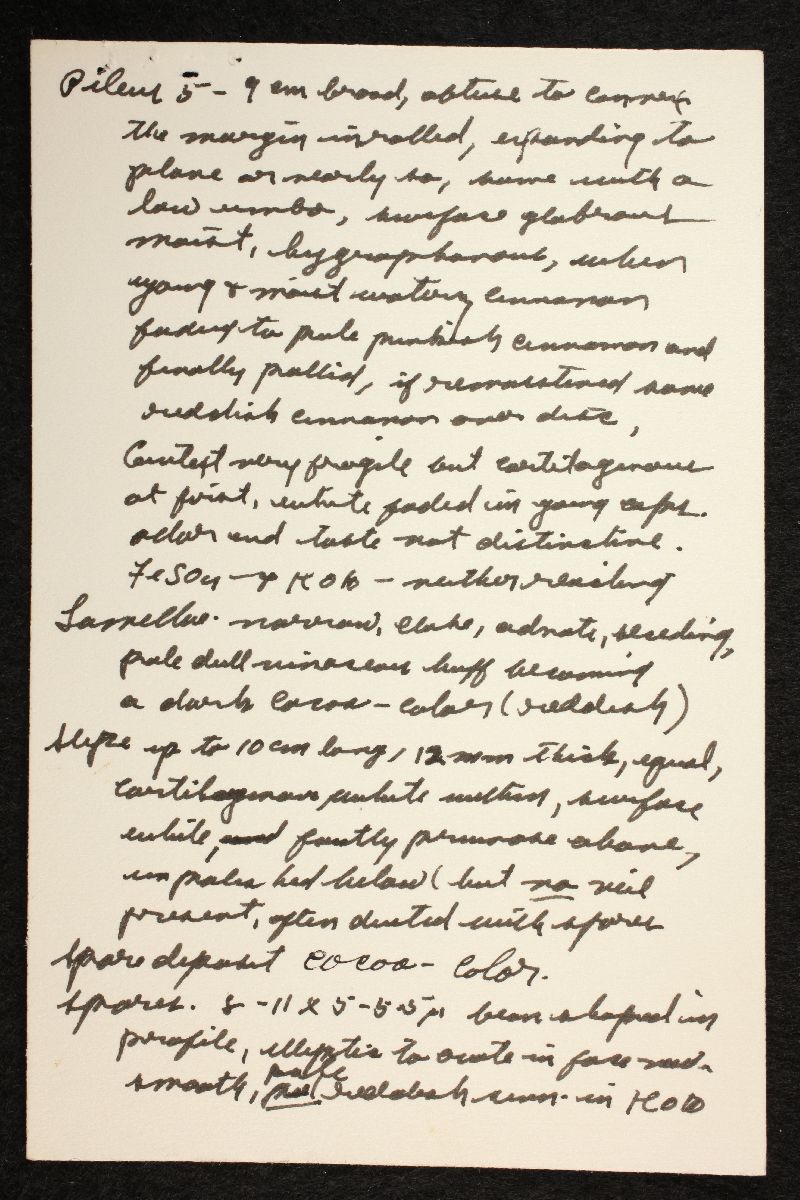 Pileus 5-9 cm broad, obtuse to convex
the margin inrolled, expanding to
plane or nearly so, some with a
low umbo, surface glabrous
moist, hygrophanous, when
young & moist watery cinnamon
fading to pale pinkish cinnamon and
finally pallid, if remoistened some
reddish cinnamon over disc,
Context very fragile but cartilaginous
at first, white faded in young caps.
odor and taste not distinctive.
FeSO4 - & KOH - neither reacting
Lamellae. narrow, close, adnate, seceding,
pale dull vinaceous buff becoming
a dark cocoa-color (reddish)
Stipe up to 10 cm long, 12 mm thick, equal,
cartilaginous, white within, surface
white, and faintly pruinose above,
unpolished below (but no veil
present, often dusted with spores
Spore deposit cocoa-color.
Spores. 8-11 x 5-5.5 µ bean shaped in
profile, elliptic to ovate in face view.
smooth, pale reddish in KOH